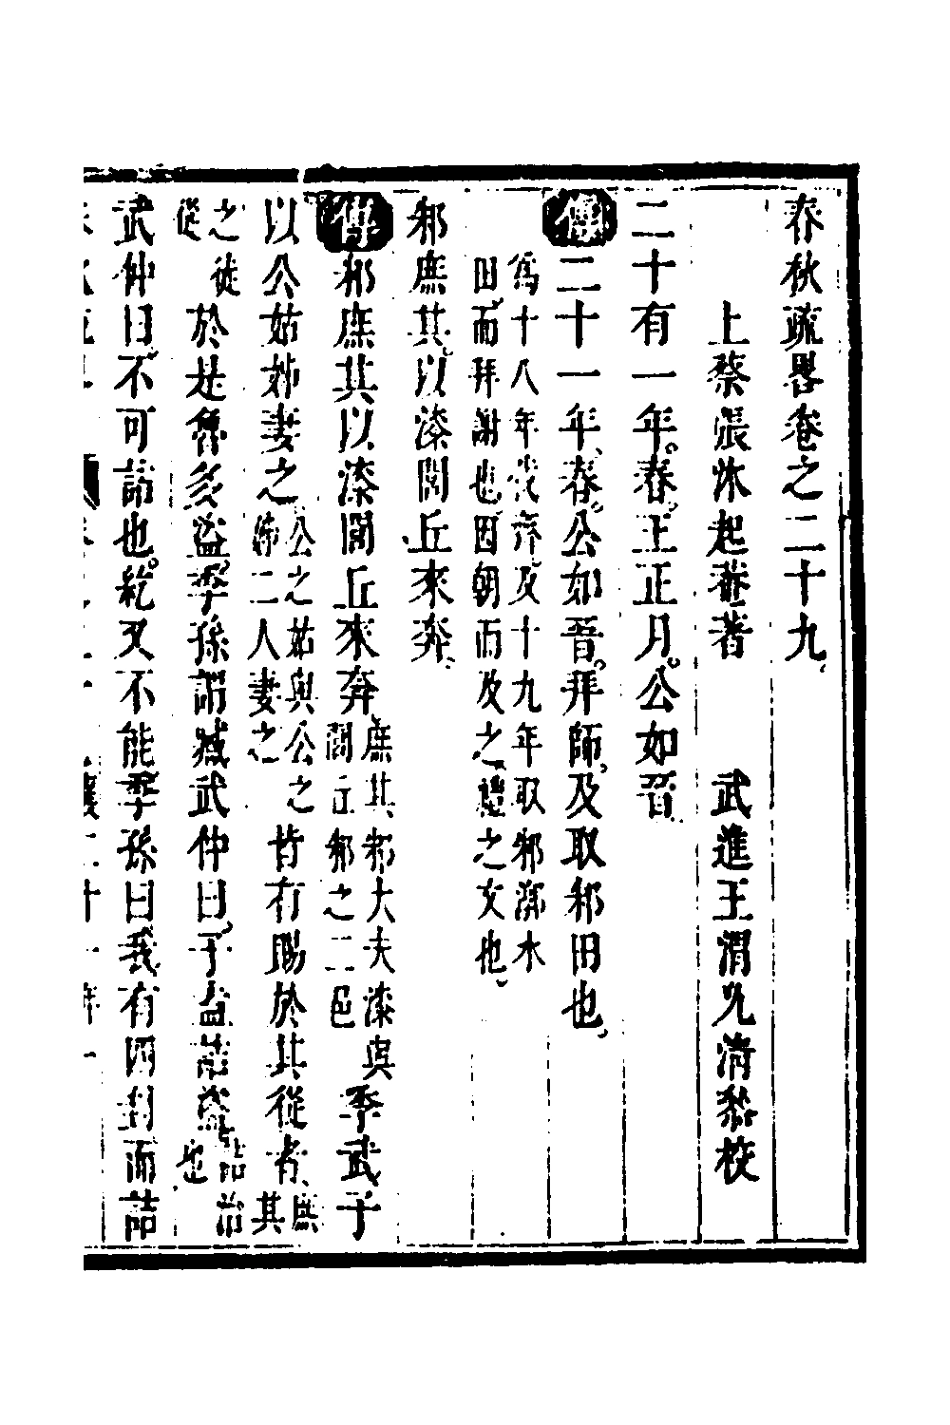 春秋疏畧卷之二十九
上蔡張沐起菴著 武進王渭允清校
二十有一年春王正月公如晉
傳二十一年春公如晉拜師及取邾田也
為十八年伐齊及十九年取邾漷水
田而拜謝也因朝而及之禮之文也
邾庶其以漆閭丘來奔
傳邾庶其以漆閭丘來奔庶其邾大夫漆與閭丘邾之二邑季武子
以公姑姊妻之公之姑與公之姊二人妻之皆有賜於其從者庶其
之從之徒於是魯多盜季孫謂臧武仲曰子盍詰盜詰治也
武仲曰不可詰也紇又不能季孫曰我有四封而詰